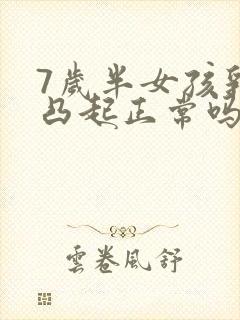 7歲半女孩乳
凸起正常吗
雲卷風舒